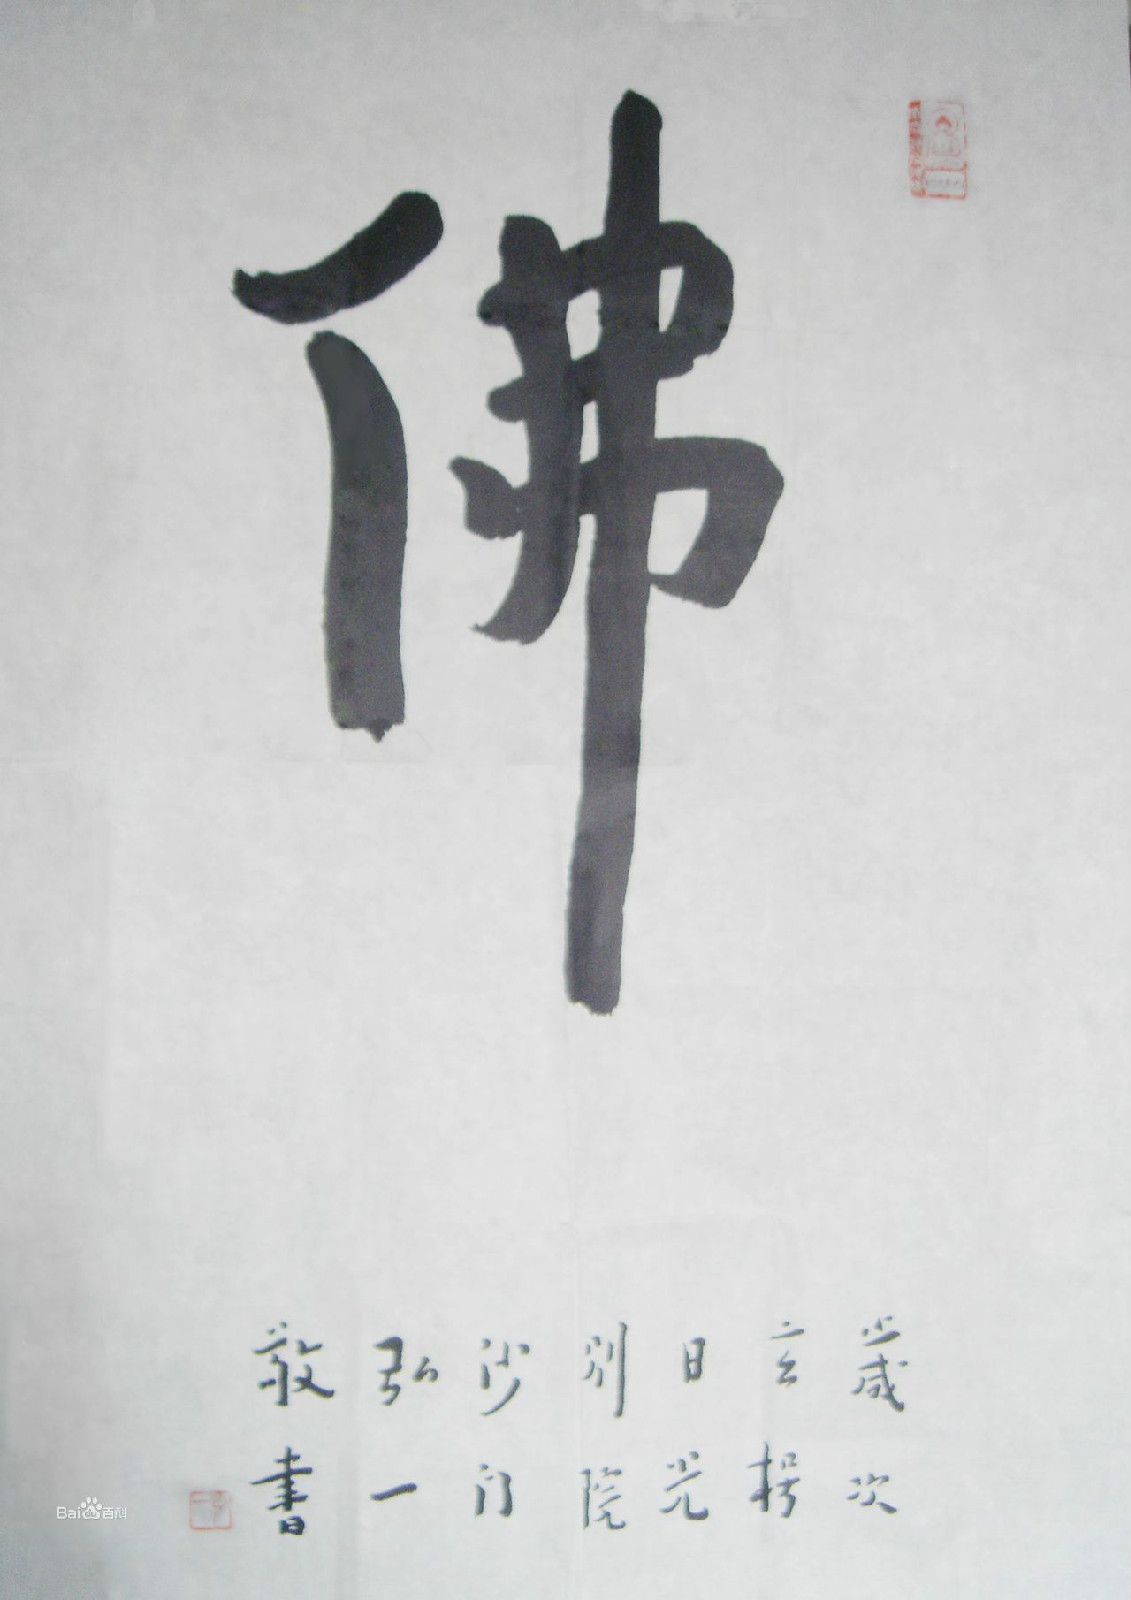 佛
歲次
玄枵
日光
別院
沙门
弘一
敬書
Bai百科